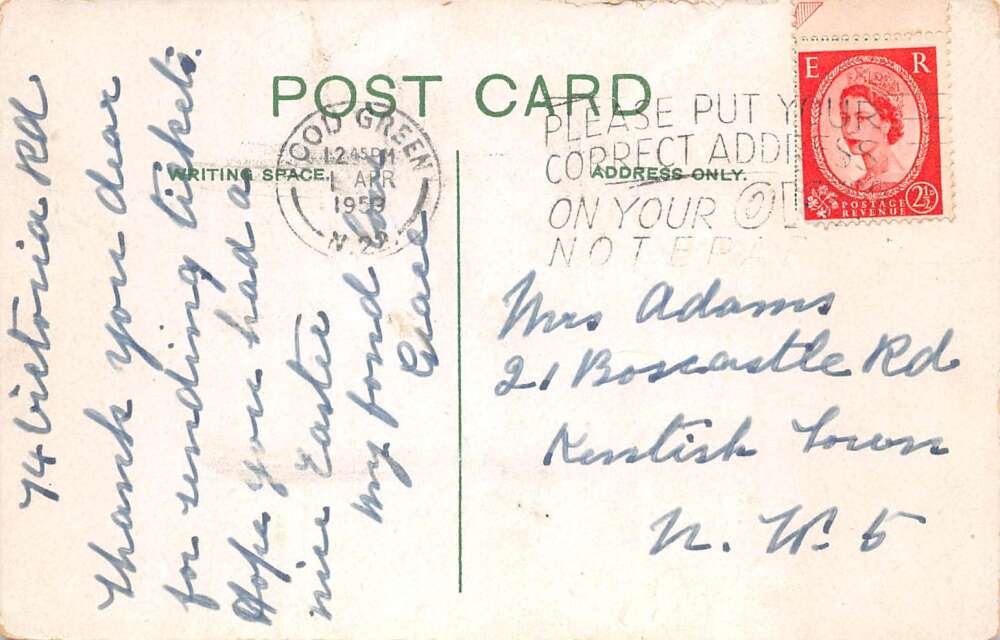 POST CARD
WRITING SPACE.
ADDRESS ONLY.
WOOD GREEN
12 45 PM
1 APR
1959
N.22.
PLEASE PUT YOUR
CORRECT ADDRESS
ON YOUR
E R
POSTAGE
REVENUE
2½D
74 Victoria Rd
Thank you dear
for sending tickets.
Hope you had a
nice Easter
my fond love
Grace
Mrs Adams
21 Boscastle Rd
Kentish Town
N. W. 5